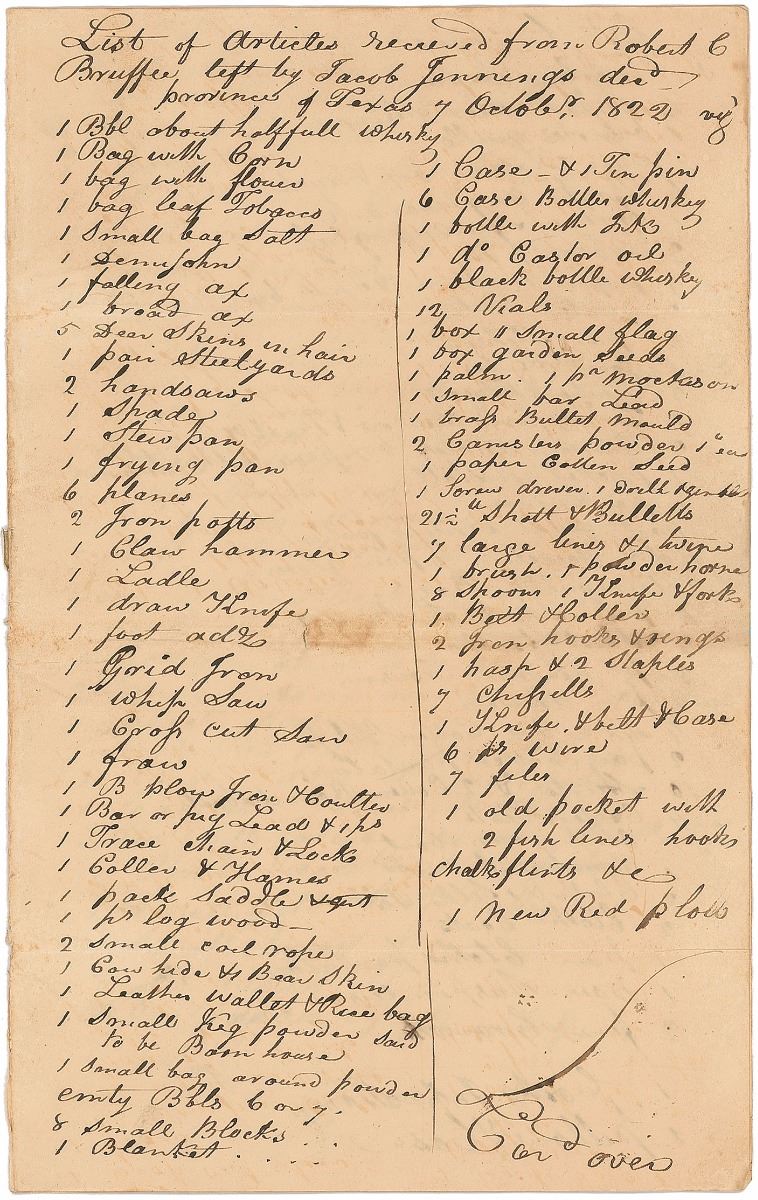 List of Articles recieved from Robert C
Bruffee left by Jacob Jennings decd
province of Texas 7 Octobr. 1822 viz
1 Bbl about half full whisky
1 Bag with Corn
1 bag with flour
1 bag leaf Tobacco
1 Small bag Salt
1 Demijohn
1 falling ax
1 broad ax
5 Deer Skins in hair
1 pair Steelyards
2 handsaws
1 Spade
1 Stew pan
1 frying pan
6 planes
2 Iron potts
1 Claw hammer
1 Ladle
1 draw Knife
1 foot adz
1 Grid Iron
1 whip Saw
1 Cross cut Saw
1 fraw
1 B plow Iron & Coulter
1 Bar or pig Lead & 1 ps
1 Trace Chain & Lock
1 Coller & Hames
1 pack Saddle &
1 ps log wood
2 Small coil rope
1 Cow hide & 1 Bear Skin
1 Leather wallet & Rice bag
1 Small Keg powder said
to be Barnhouse
1 Small bag around powder
emty Bbls 6 or 7.
8 Small Blocks
1 Blanket . . . .
1 Case - & 1 Tin pin
6 Case Bottles whiskey
1 bottle with
1 do Castor oil
1 black bottle whiskey
12 Vials
1 box " Small flag
1 box garden Seeds
1 palm. 1 pr Mockason
1 Small bar Lead
1 brass Bullet Mould
2 Canisters powder 1" ea
1 paper Cotten Seed
1 Screw driver. 1 Drill
21½ " Shott & Bulletts
7 large lines & 1 twine
1 brush. 1 powder horne
8 Spoons 1 Knife & forks
1 Belt & Coller
2 Iron hooks & rings
1 hasp & 2 Staples
7 Chissells
1 Knife. & belt & Case
6 wire
7 files
1 old pocket with
2 fish lines hooks
chalk flints &c
1 New Red
over